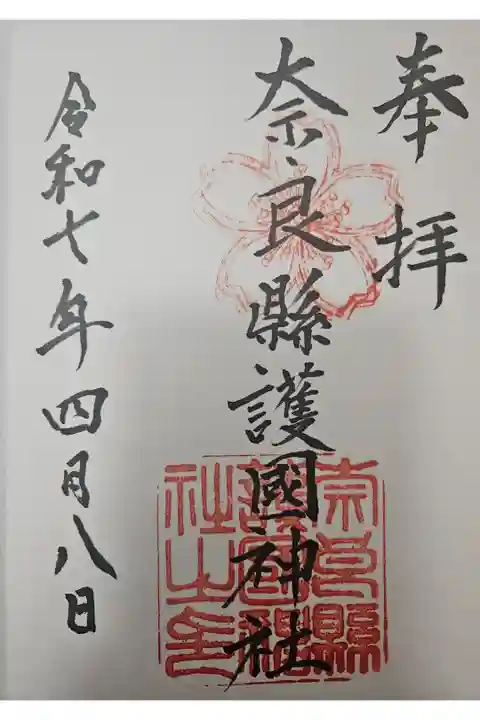 奉拝
奈良縣護國神社
令和七年四月八日
奈良縣護國神社之印